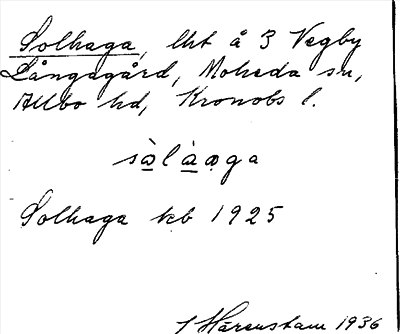 Solhaga, lht å 3 Vegby
Långagård, Moheda sn,
Allbo hd, Kronobs l.
sòlàǫga
Solhaga kb 1925
Härenstam 1936